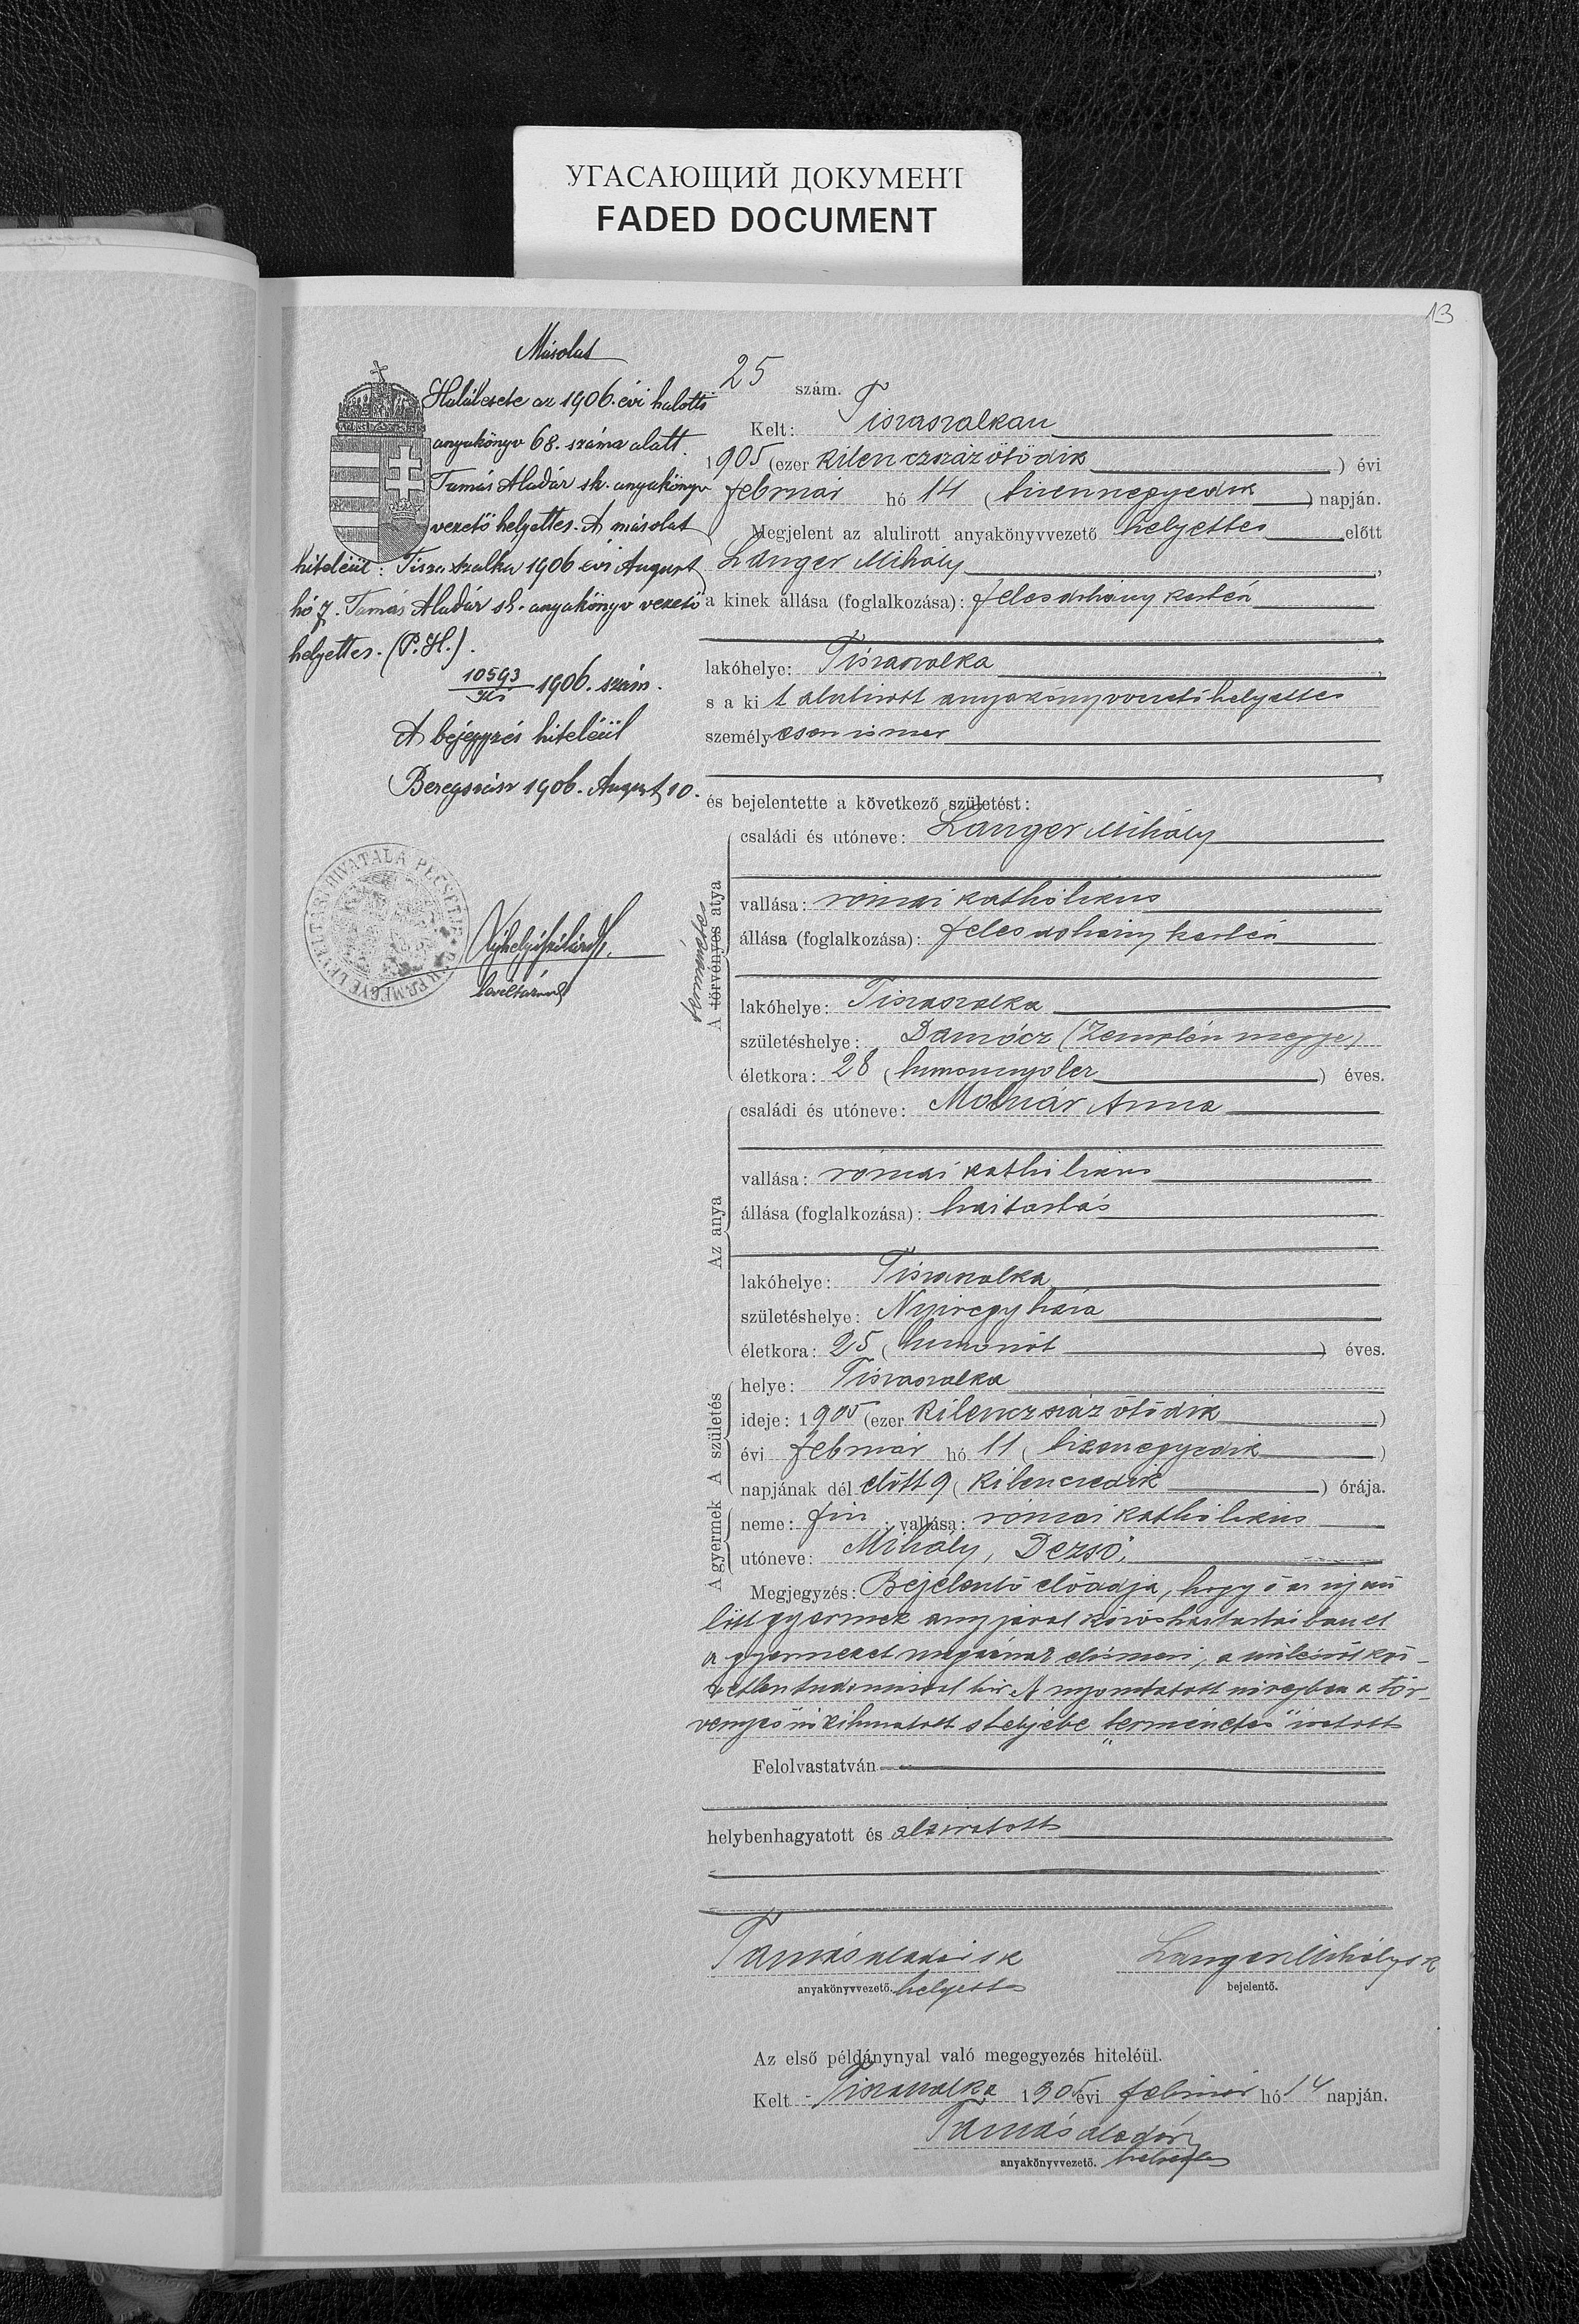 УГАСАЮЩИЙ ДОКУМЕНТ
FADED DOCUMENT
13
Másolat
Halálesete az 1906. évi halotti
anyakönyv 68. száma alatt.
Tamás Aladár sk. anyakönyv
vezető helyettes. A másolat
hiteléül: Tiszaszalka 1906 évi August
hó 7. Tamás Aladár sk. anyakönyv vezető
helyettes. (P. H.).
10593 1906. szám.
A bejegyzés hiteléül
Beregszász 1906. August 10.
levéltárnok
25 szám.
Kelt: Tiszaszalkán
1905 (ezer kilenczszáz ötödik) évi
február hó 14 (tizennegyedik) napján.
Megjelent az alulirott anyakönyvvezető helyettes előtt
Langer Mihály,
a kinek állása (foglalkozása): feles dohány kertész
lakóhelye: Tiszaszalka,
s a ki t alulirott anyakönyvvezető helyettes
személyesen ismer
és bejelentette a következő születést:
A törvényes atya
természetes
családi és utóneve: Langer Mihály
vallása: római katholikus
állása (foglalkozása): feles dohány kertész
lakóhelye: Tiszaszalka
születéshelye: Damócz (Zemplén megye)
életkora: 28 (huszonnyolcz) éves.
Az anya
családi és utóneve: Molnár Anna
vallása: római katholikus
állása (foglalkozása): háztartás
lakóhelye: Tiszaszalka
születéshelye: Nyiregyháza
életkora: 25 (huszonöt) éves.
A születés
helye: Tiszaszalka
ideje: 1905 (ezer kilenczszáz ötödik)
évi február hó 11 (tizenegyedik)
napjának dél előtt 9 (kilenczedik) órája.
A gyermek
neme: fiu; vallása: római katholikus
utóneve: Mihály, Dezső.
Megjegyzés: Bejelentő előadja, hogy ő az ujszü
lött gyermek anyjával közös háztartásban él
a gyermeket magáénak elismeri, a szülésről köz-
vetlen tudomással bir A nyomtatott szövegben a „tör-
vényes" szó kihuzatott s helyébe „természetes" iratott
Felolvastatván
helybenhagyatott és aláiratott
Tamás Aladár sk
anyakönyvvezető. helyettes
Langer Mihály sk
bejelentő.
Az első példánynyal való megegyezés hiteléül.
Kelt Tiszaszalka 1905 évi február hó 14 napján.
Tamás Aladár
anyakönyvvezető. helyettes